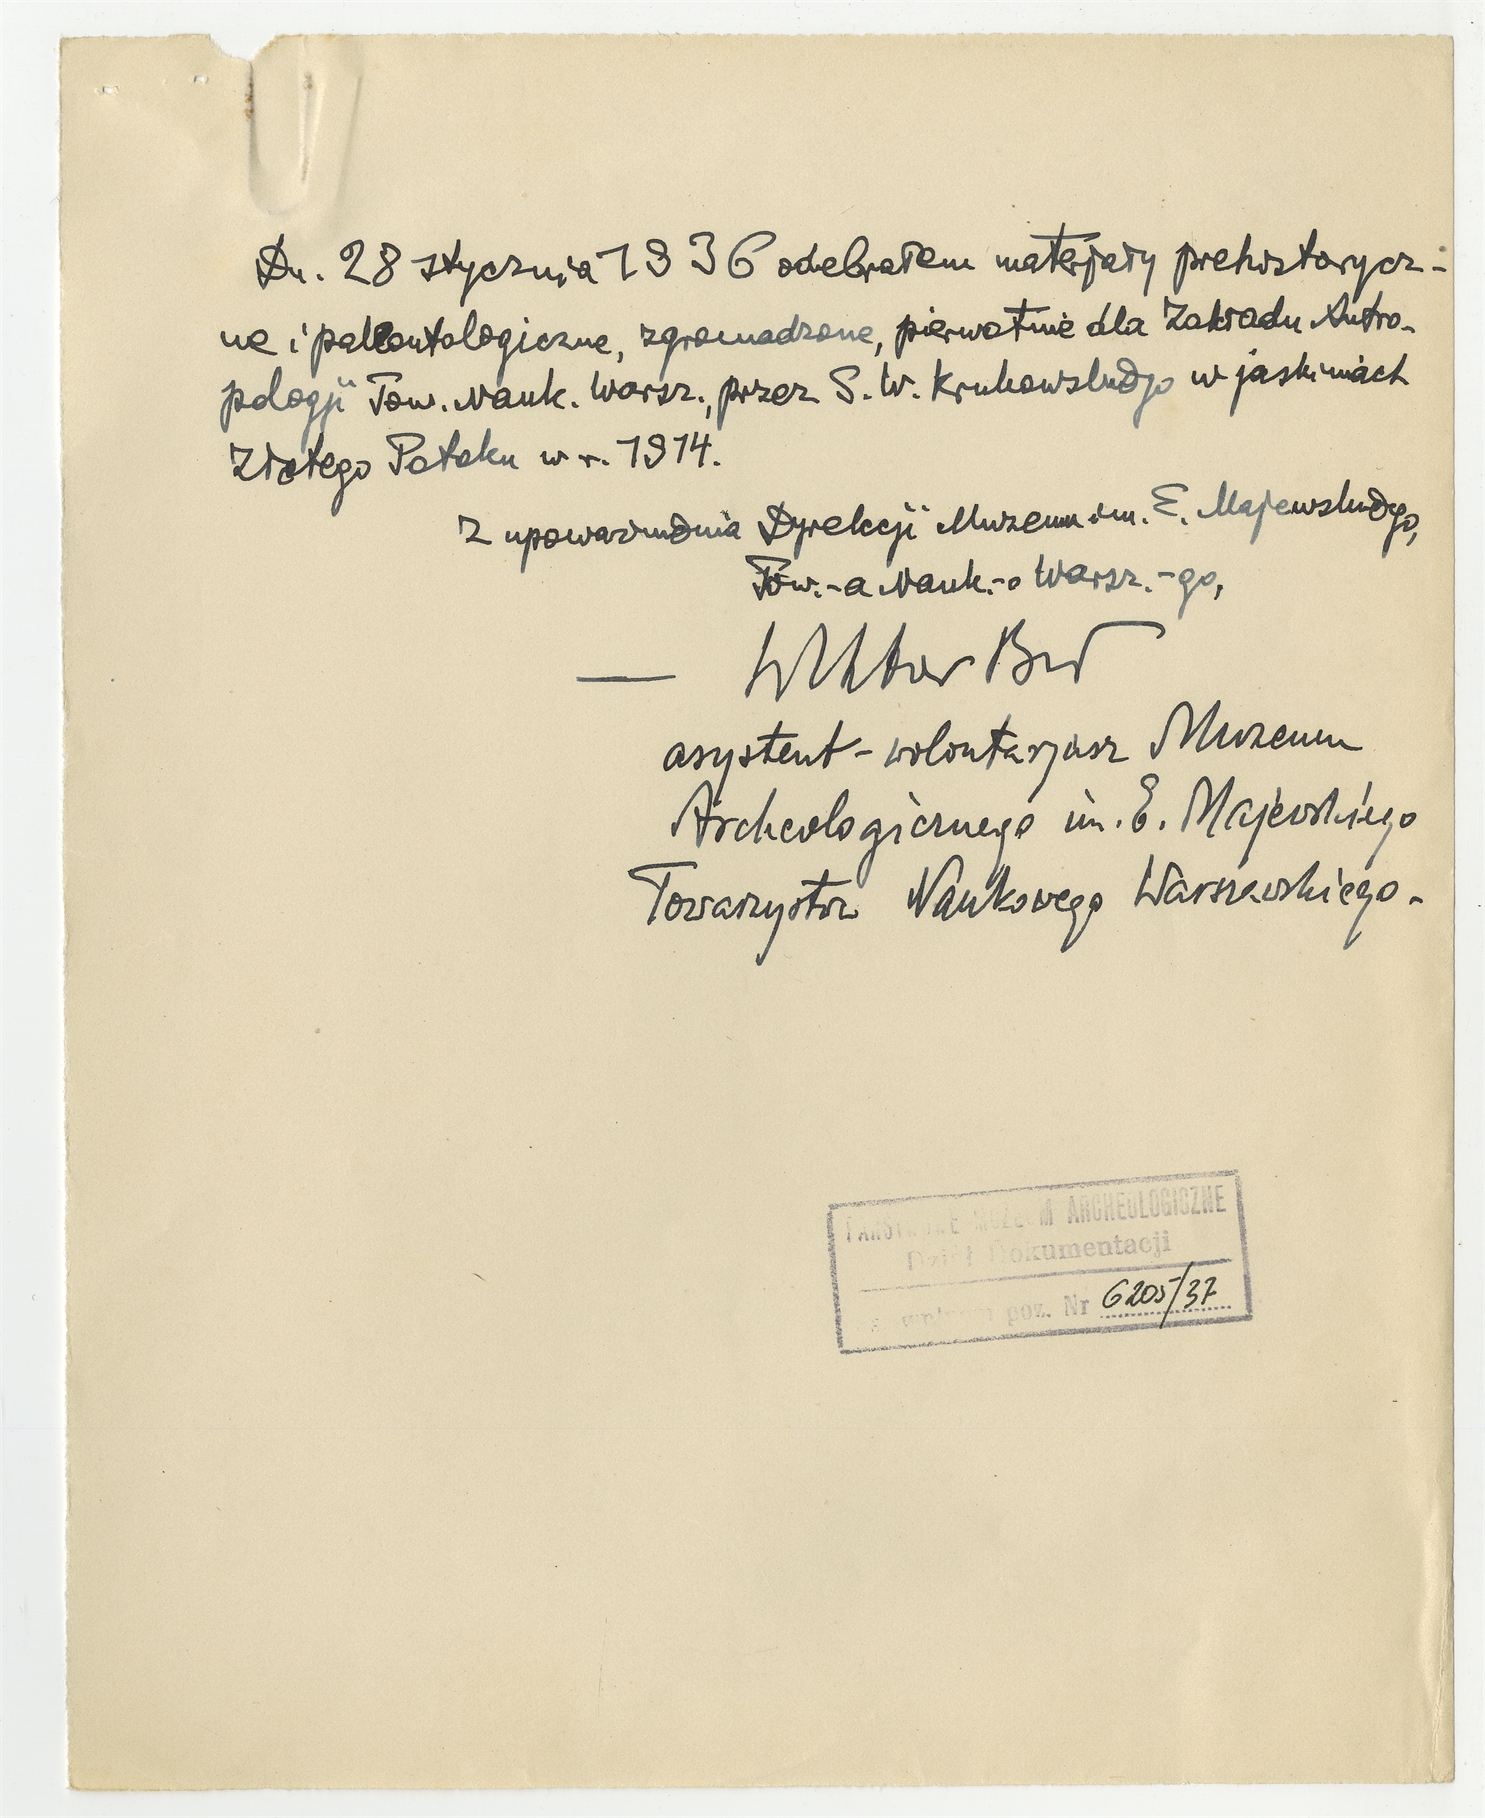 Dn. 28 stycznia 1936 odebrałem materjały prehistorycz-
ne i paleontologiczne, zgromadzone, pierwotnie dla Zakładu Antro-
pologji Tow. Nauk. Warsz., przez S. W. Krukowskiego w jaskiniach
Złotego Potoku w r. 1914.
Z upoważnienia Dyrekcji Muzeum im. E. Majewskiego,
Tow.-a Nauk.-o Warsz.-go,
— Wiktor
asystent-wolontarjusz Muzeum
Archeologicznego im. E. Majewskiego
Towarzystw Naukowego Warszawskiego.
PAŃSTWOWE MUZEUM ARCHEOLOGICZNE
Dział Dokumentacji
poz. Nr 6205/37